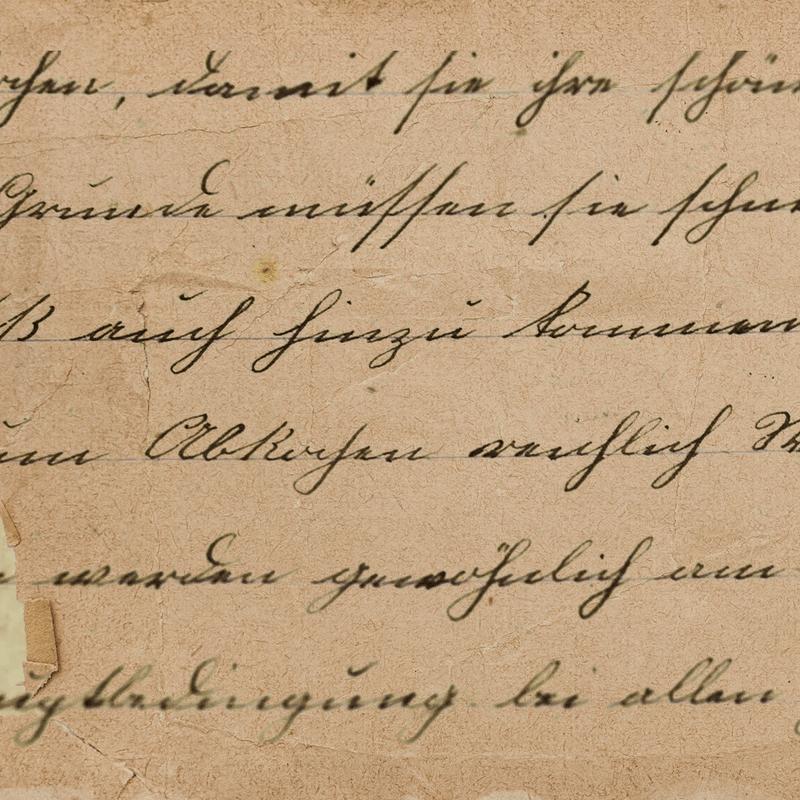 chen, damit sie ihre schön
Grunde müssen sie schne
ß auch hinzu kommen
um Abkochen reichlich W
werden gewöhnlich am
uptbedingung bei allen